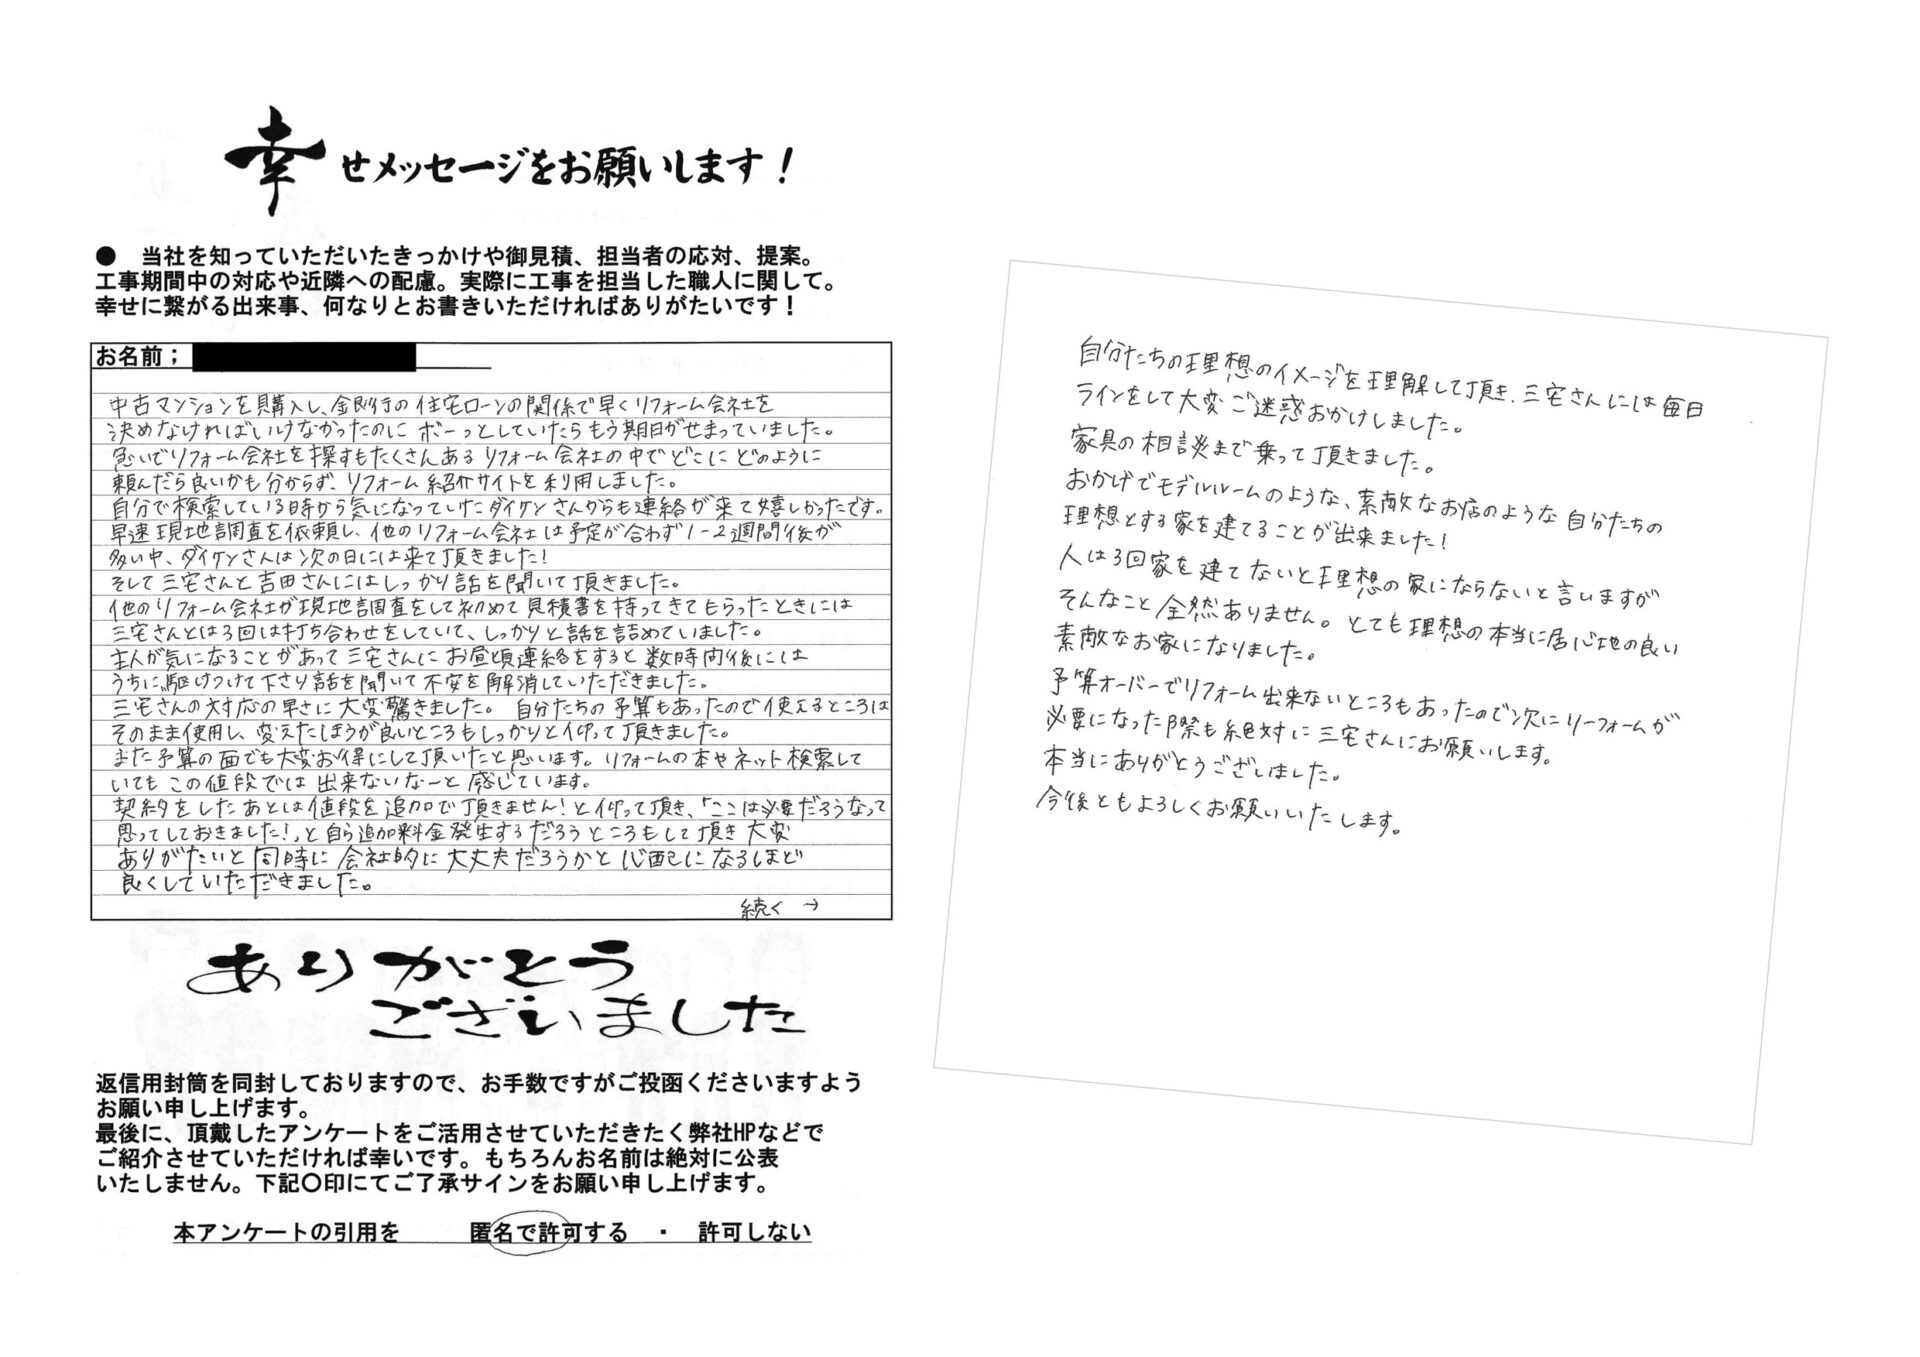 幸せメッセージをお願いします！
● 当社を知っていただいたきっかけや御見積、担当者の応対、提案。
工事期間中の対応や近隣への配慮。実際に工事を担当した職人に関して。
幸せに繋がる出来事、何なりとお書きいただければありがたいです！
お名前；
中古マンションを購入し、金融行の住宅ローンの関係で早くリフォーム会社を
決めなければいけなかったのに ボーっとしていたらもう期日がせまっていました。
急いでリフォーム会社を探すもたくさんある リフォーム会社の中で どこに どのように
頼んだら良いかも分からず、リフォーム紹介サイトを利用しました。
自分で検索している時から気になっていたダイケンさんからも連絡が来て嬉しかったです。
早速現地調査を依頼し、他のリフォーム会社は予定が合わず1-2週間後が
多い中、ダイケンさんは次の日には来て頂きました！
そして三宅さんと吉田さんにはしっかり話を聞いて頂きました。
他のリフォーム会社が現地調査をして初めて見積書を持ってきてもらったときには
三宅さんとは3回は打ち合わせをしていて、しっかりと話を詰めていました。
主人が気になることがあって三宅さんに お昼頃連絡をすると数時間後には
うちに駆けつけて下さり話を聞いて不安を解消していただきました。
三宅さんの対応の早さに大変驚きました。 自分たちの予算もあったので使えるところは
そのまま使用し、変えたほうが良いところもしっかりと仰って頂きました。
また予算の面でも大変お得にして頂いたと思います。リフォームの本やネット検索して
いても この値段では 出来ないなーと 感じています。
契約をしたあとは値段を追加で頂きません！と仰って頂き、「ここは必要だろうなって
思ってしておきました！」と自ら追加料金発生するだろうところもして頂き 大変
ありがたいと同時に 会社的に大丈夫だろうかと 心配になるほど
良くしていただきました。
続く →
ありがとう
ございました
返信用封筒を同封しておりますので、お手数ですがご投函くださいますよう
お願い申し上げます。
最後に、頂戴したアンケートをご活用させていただきたく弊社HPなどで
ご紹介させていただければ幸いです。もちろんお名前は絶対に公表
いたしません。下記〇印にてご了承サインをお願い申し上げます。
本アンケートの引用を 匿名で許可する ・ 許可しない
自分たちの理想のイメージを理解して頂き、三宅さんには毎日
ラインをして大変ご迷惑おかけしました。
家具の相談まで乗って頂きました。
おかげでモデルルームのような、素敵なお店のような 自分たちの
理想とする家を建てることが出来ました！
人は3回家を建てないと理想の家にならないと言いますが
そんなこと全然ありません。とても理想の本当に居心地の良い
素敵なお家になりました。
予算オーバーでリフォーム出来ないところもあったので次にリーフォームが
必要になった際も絶対に三宅さんにお願いします。
本当にありがとうございました。
今後ともよろしくお願いいたします。